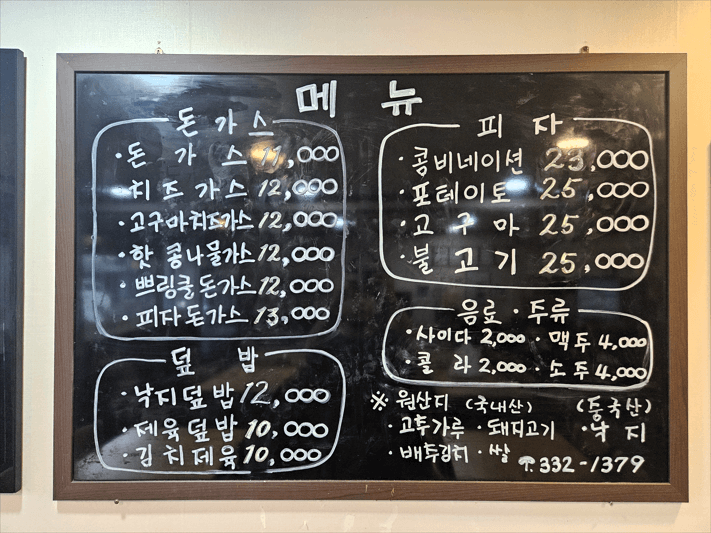 메 뉴
돈 가 스
· 돈 가 스 11,000
· 치 즈 가 스 12,000
· 고구마치즈가스 12,000
· 핫 콩나물가스 12,000
· 쁘링클 돈가스 12,000
· 피자 돈가스 13,000
덮 밥
· 낙지덮밥 12,000
· 제육덮밥 10,000
· 김치제육 10,000
피 자
· 콤비네이션 23,000
· 포테이토 25,000
· 고 구 마 25,000
· 불 고 기 25,000
음료 · 주류
· 사이다 2,000 · 맥주 4,000
· 콜 라 2,000 · 소주 4,000
※ 원산지 (국내산) (중국산)
· 고추가루 · 돼지고기 · 낙 지
· 배추김치 · 쌀
☎ 332-1379